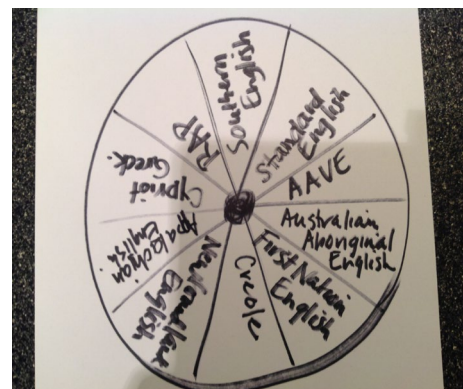 Southern
English
Standard
English
AAVE
Australian
Aboriginal
English
First Nation
English
Creole
Newfoundland
English
Appalachian
English
Cypriot
Greek
RAP